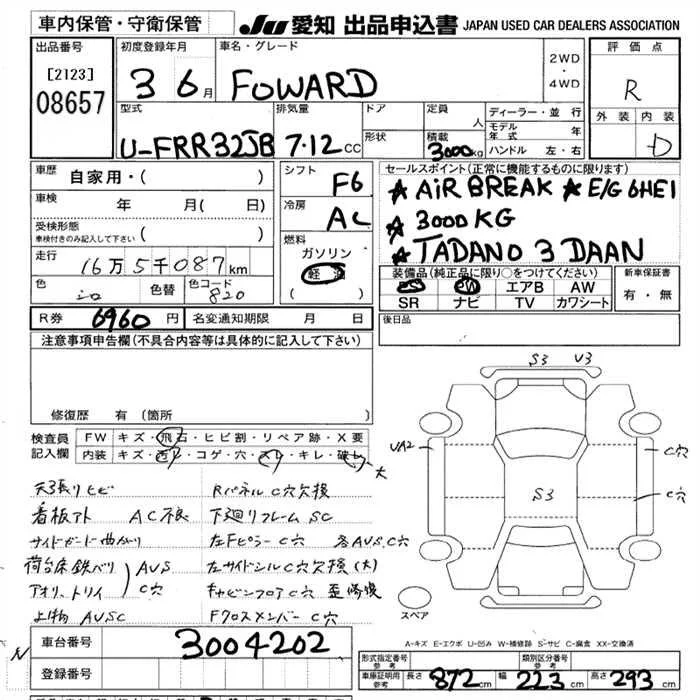 車内保管・守衛保管
JU 愛知 出品申込書 JAPAN USED CAR DEALERS ASSOCIATION
出品番号
[2123]
08657
初度登録年月
3 6月
車名・グレード
FOWARD
2WD
・
4WD
評価点
R
外装 内装
D
型式
U-FRR32JB
排気量
7.12 CC
ドア
形状
定員
人
積載
3000kg
ディーラー・並行
モデル年式 年
ハンドル 左・右
車歴
自家用・( )
車検
年 月( 日)
受検形態
車検付きのみ記入して下さい ( )
走行
16万5千087km
色
シロ
色替
色コード
820
シフト
F6
冷房
AC
燃料
ガソリン
軽油
( )
セールスポイント(正常に機能するものに限ります)
★ AiR BREAK ★ E/G 6HE1
★ 3000KG
★ TADANO 3 DAAN
装備品(純正品に限り○をつけてください)
PS PW エアB AW
SR ナビ TV カワシート
新車保証書
有・無
R券 6960 円
名変通知期限 月 日
後日品
注意事項申告欄(不具合内容等は具体的に記入して下さい)
修復歴 有(箇所
検査員記入欄
FW キズ・飛石・ヒビ割・リペア跡・X要
内装 キズ・汚レ・コゲ・穴・スレ・キレ・破レ 大
天張りヒビ
看板アト AC不良
サイドガード曲がり
荷台床鉄バリ
アオリ・トリイ
AUS
C穴
上物 AUSC
Rパネル C穴欠後
下廻リフレーム SC
左Fピラー C穴 各AUS,C穴
左サイドシル C穴欠損(大)
キャビンフロア C穴 歪修後
Fクロスメンバー C穴
S3 U3
UA2
C穴
C穴
S3
スペア
A-キズ E-エクボ U-凹み W-補修跡 S-サビ C-腐食 XX-交換済
車台番号
3004202
登録番号
形式指定番号
参考
類別区分番号
参考
車庫証明用
参考
長さ 872cm 幅 223cm 高さ 293cm